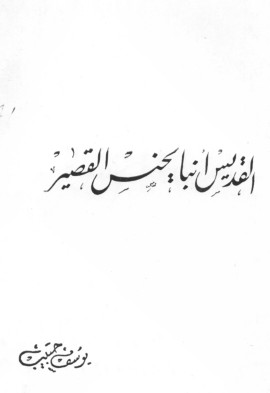 القديس أنبا يحنس القصير
يوسف حبيب